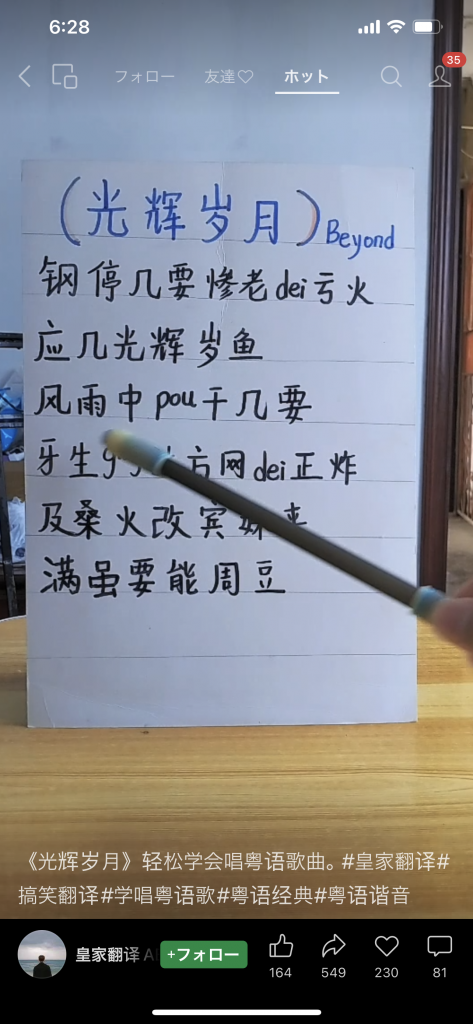 6:28
フォロー 友達♡ ホット
35
(光辉岁月) Beyond
钢停几要惨老dei亏火
应几光辉岁鱼
风雨中pou干几要
牙生 方网dei正炸
及桑火改宾
满虽要能周豆
《光辉岁月》轻松学会唱粤语歌曲。#皇家翻译#
搞笑翻译#学唱粤语歌#粤语经典#粤语谐音
皇家翻译 +フォロー
164 549 230 81